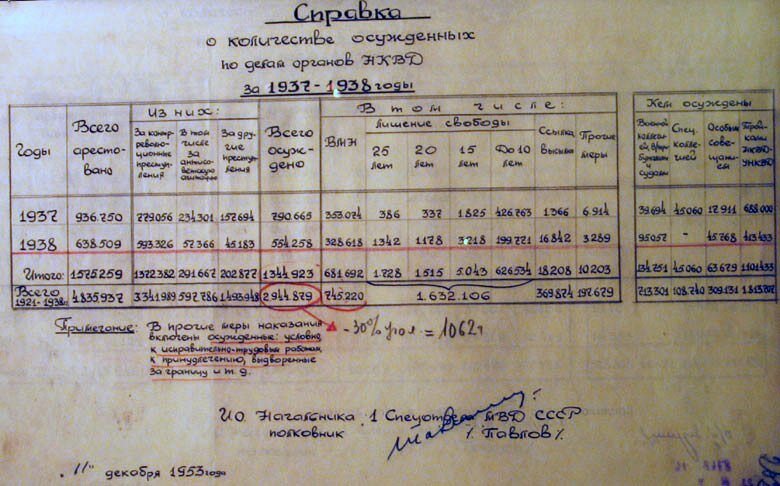 Справка
о количестве осужденных
по делам органов НКВД
за 1937-1938 годы
Годы Всего арестовано Из них: Всего осуждено В том числе: Кем осуждены
За контрреволюционные преступления В том числе за антисоветскую агитацию За другие преступления ВМН Лишение свободы Ссылка высылка Прочие меры Военной коллегией, и судами Спец. коллегией Особым совещанием Тройками НКВД-УНКВД
25 лет 20 лет 15 лет До 10 лет
1937 936.750 779056 234301 157694 790.665 353.074 386 337 1825 426.763 1366 6.914 39.694 45.060 17.911 688.000
1938 638.509 593.326 57.366 45.183 554.258 328.618 1342 1178 3218 199.771 16.842 3289 95057 - 45.768 413.433
Итого: 1575259 1372382 291.667 202877 1344923 681.692 1.728 1.515 5.043 626.534 18208 10.203 134.751 45.060 63.679 1101433
Всего 1921-1938гг 4835937 3341989 1493948 2944879 745220 1.632.106 369874 197679 713301 108.740 309.131
Примечание: В прочие меры наказания
включены осужденные: условно
к исправительно-трудовым работам,
к принудлечению, выдворенные
за границу и т.д.
-30% угол = 1062т
ИО Начальника 1 Спецотдела МВД СССР
полковник /Павлов/
"11" декабря 1953 года